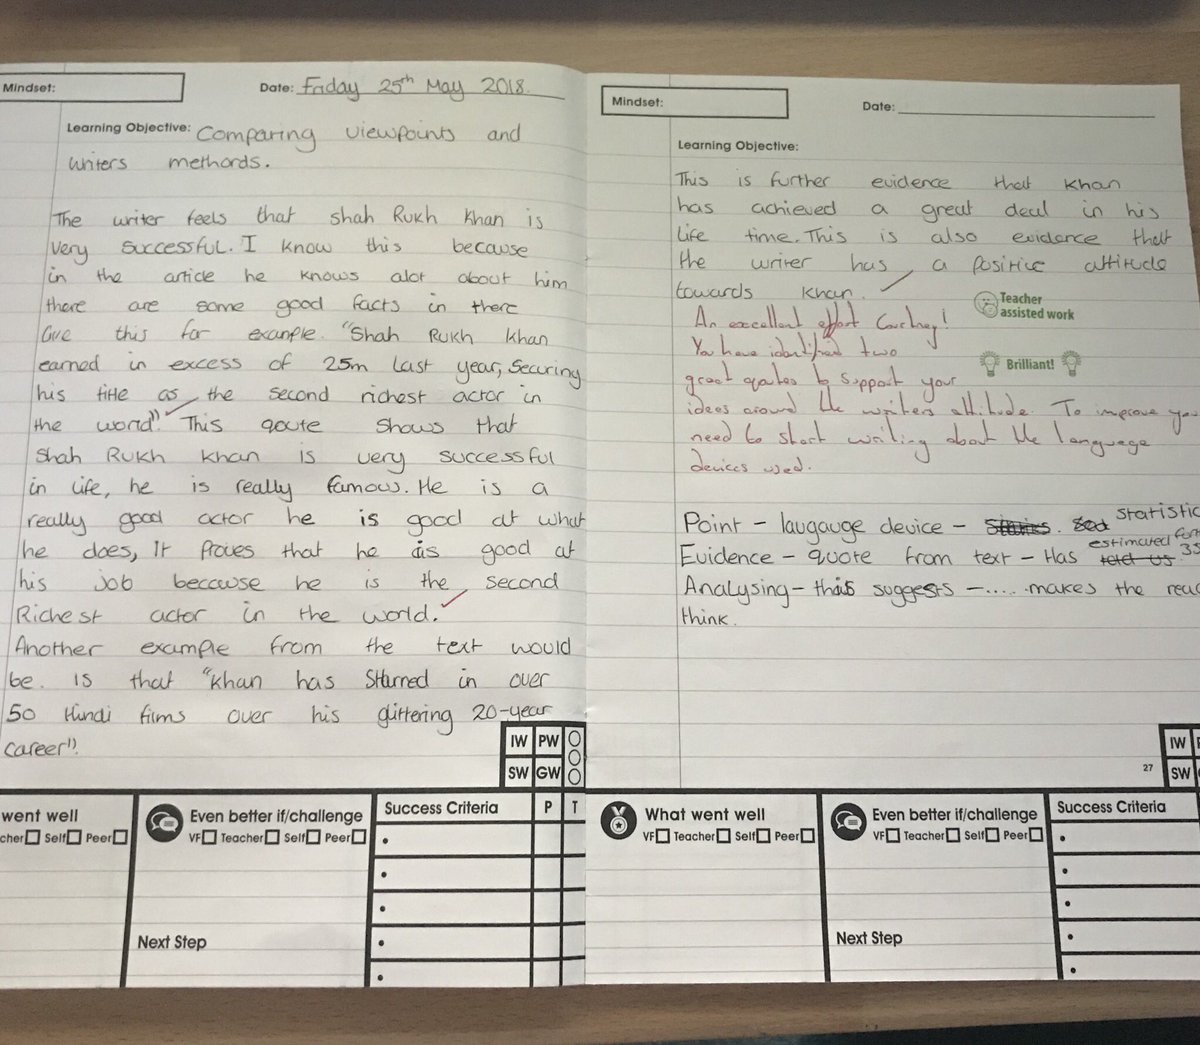 Mindset:
Date: Friday 25th May 2018.
Learning Objective: Comparing viewpoints and
writers methords.
The writer feels that shah Rukh Khan is
very successful. I know this because
in the article he knows alot about him
there are some good facts in there
Give this for example. "Shah Rukh Khan
earned in excess of 25m last year, securing
his title as the second richest actor in
the world". This qoute shows that
Shah Rukh khan is very successful
in life, he is really famous. He is a
really good actor he is good at what
he does, It Proves that he is good at
his job because he is the second
Richest actor in the world.
Another example from the text would
be. is that "khan has Starred in over
50 Hindi films over his glittering 20-year
career".
IW PW
SW GW
went well
cher Self Peer
Even better if/challenge
VF Teacher Self Peer
Next Step
Success Criteria P T
Mindset:
Date:
Learning Objective:
This is further evidence that Khan
has achieved a great deal in his
life time. This is also evidence that
the writer has a positive attitude
towards Khan.
Teacher
assisted work
An excellent effort Courtney!
You have identified two
Brilliant!
great quotes to support your
ideas around the writers attitude. To improve you
need to start writing about the language
devices used.
Point - laugauge device - statistic
Evidence - quote from text - Has estimated 35
Analysing - this suggests - ..... makes the rea
think.
27
IW
SW
What went well
VF Teacher Self Peer
Even better if/challenge
VF Teacher Self Peer
Next Step
Success Criteria